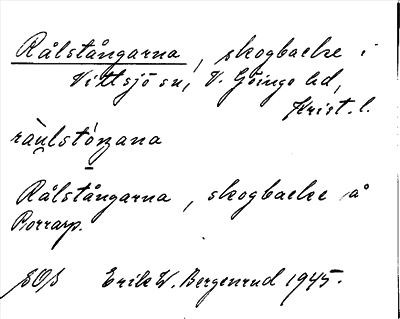 Rålstångarna, skogbacke i
Vittsjö sn, V. Göinge hd,
Krist. l.
ràu̯lstóŋana
Rålstångarna, skogbacke å
Porrarp.
SOS Erik W. Bergenrud 1945.